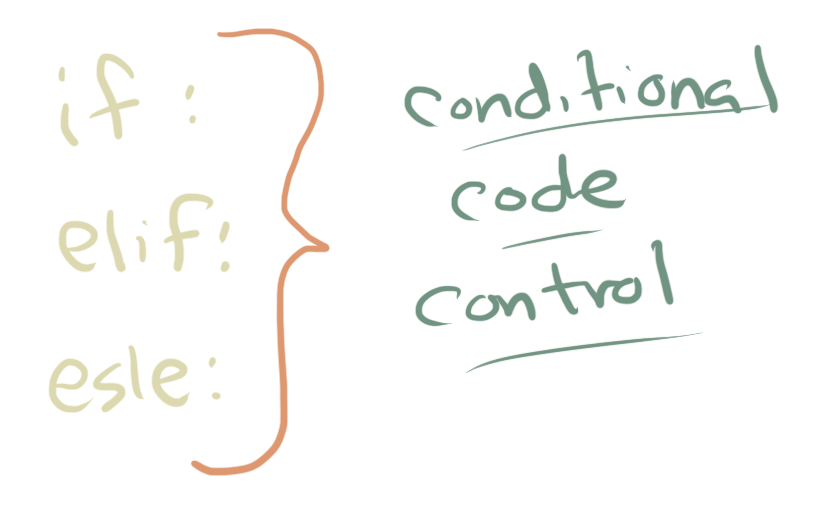 if :
elif:
esle:
conditional
code
control